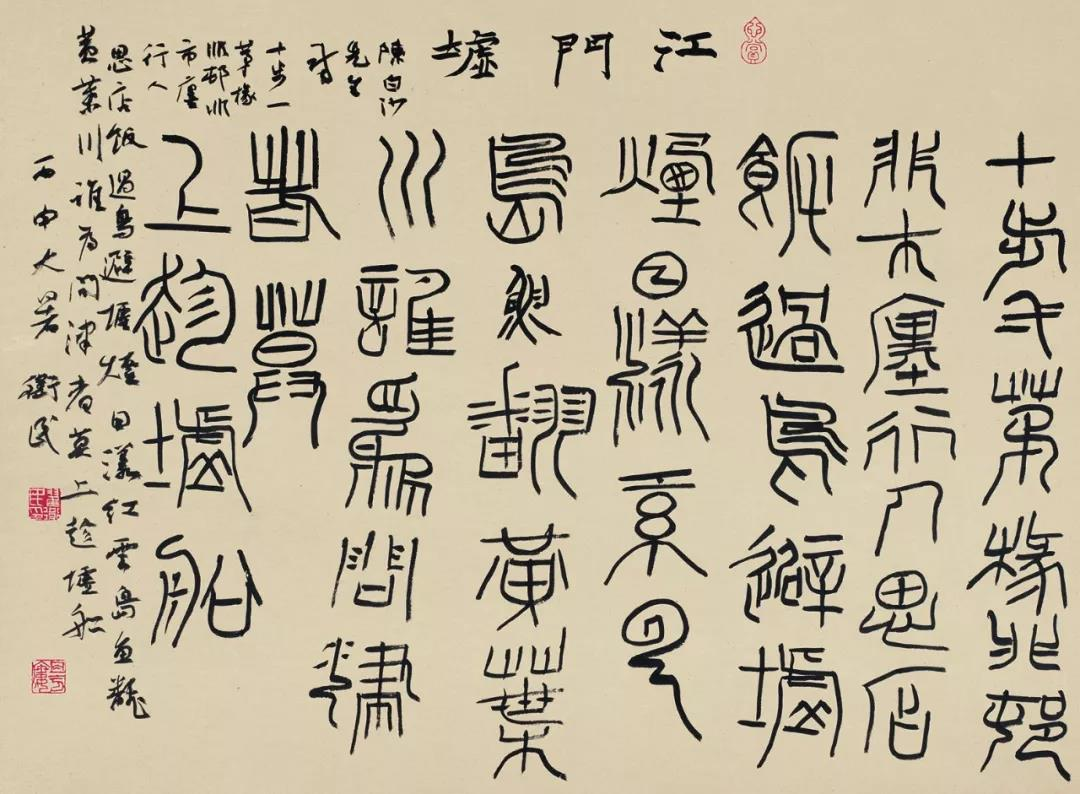 江門墟
十步弌茅椽非邨
非市廛行人思店
飯過鳥避墟
煙日漾紅雲
島魚翻黃葉
川誰為問津
者莫
上趁墟船
陳白沙
先生
十步一
茅椽
非邨非
市廛
行人
思店飯過鳥避墟煙日漾紅雲島魚翻
黃葉川誰為問津者莫上趁墟船
丙申大暑 衛民